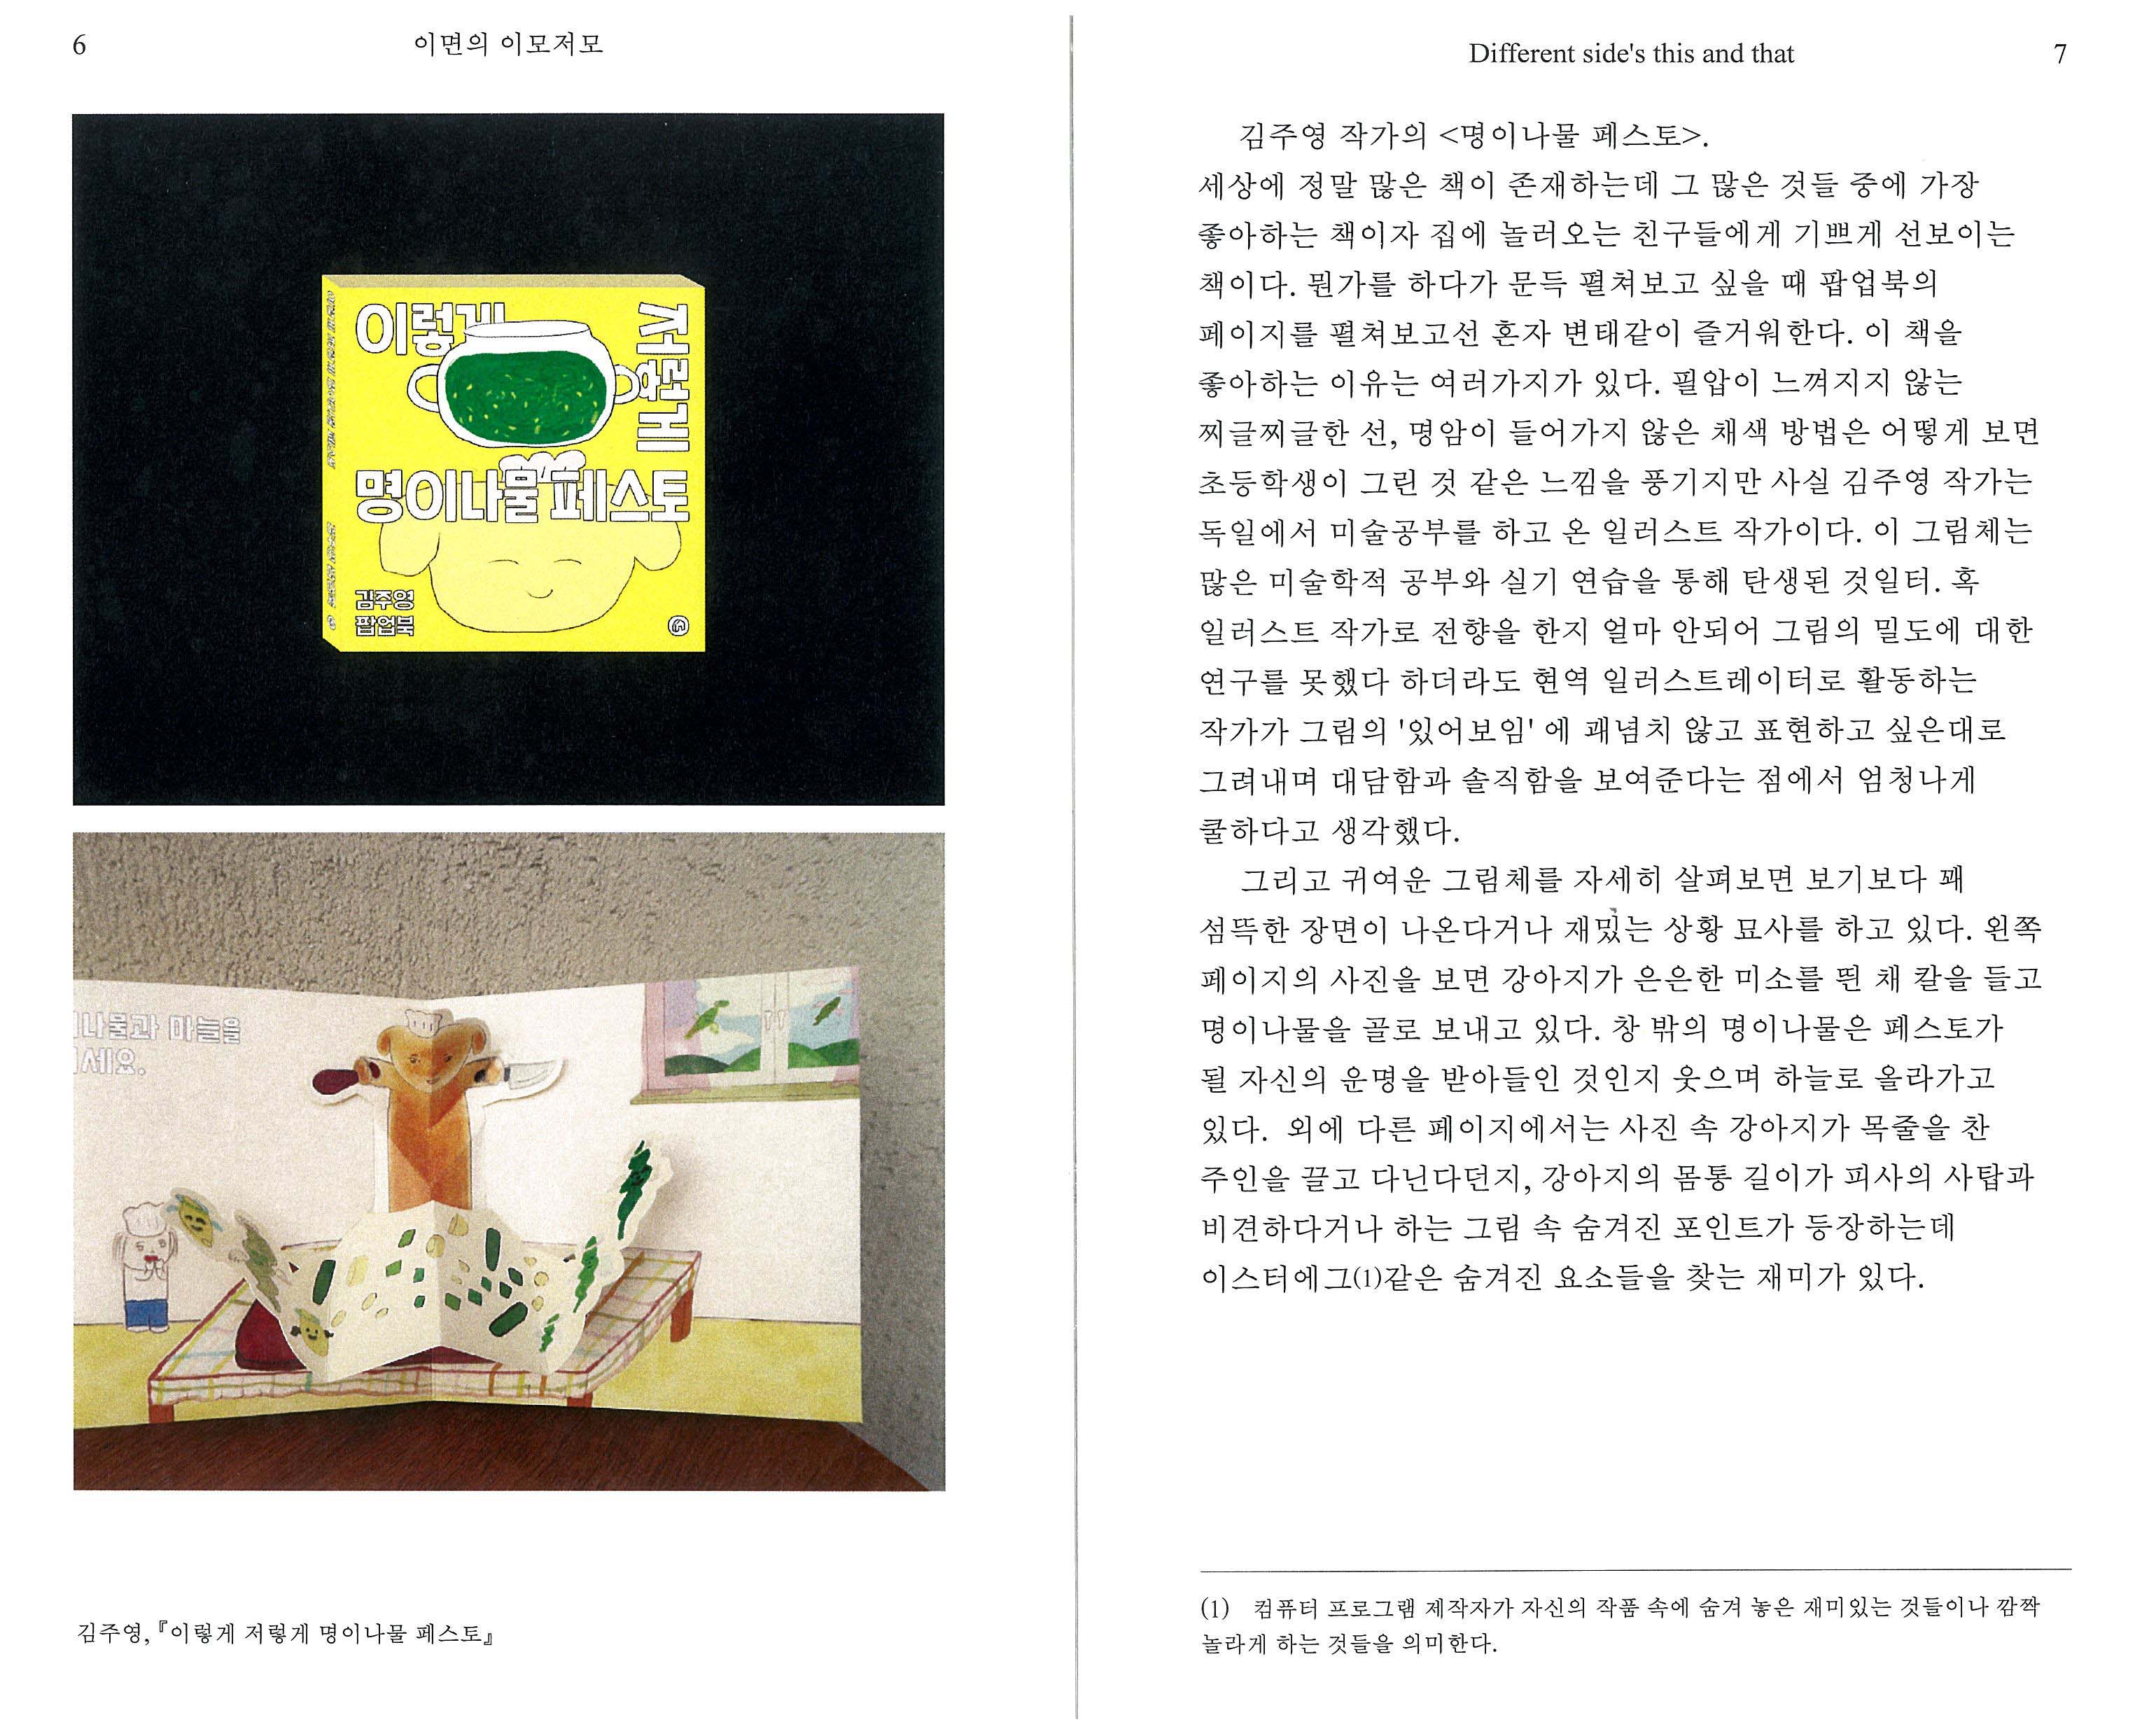 6
이면의 이모저모
이렇게
저렇게
명이나물 페스토
김주영
팝업북
나물과 마늘을
세요.
김주영,『이렇게 저렇게 명이나물 페스토』
Different side's this and that
7
김주영 작가의 <명이나물 페스토>.
세상에 정말 많은 책이 존재하는데 그 많은 것들 중에 가장
좋아하는 책이자 집에 놀러오는 친구들에게 기쁘게 선보이는
책이다. 뭔가를 하다가 문득 펼쳐보고 싶을 때 팝업북의
페이지를 펼쳐보고선 혼자 변태같이 즐거워한다. 이 책을
좋아하는 이유는 여러가지가 있다. 필압이 느껴지지 않는
찌글찌글한 선, 명암이 들어가지 않은 채색 방법은 어떻게 보면
초등학생이 그린 것 같은 느낌을 풍기지만 사실 김주영 작가는
독일에서 미술공부를 하고 온 일러스트 작가이다. 이 그림체는
많은 미술학적 공부와 실기 연습을 통해 탄생된 것일터. 혹
일러스트 작가로 전향을 한지 얼마 안되어 그림의 밀도에 대한
연구를 못했다 하더라도 현역 일러스트레이터로 활동하는
작가가 그림의 '있어보임' 에 괘념치 않고 표현하고 싶은대로
그려내며 대담함과 솔직함을 보여준다는 점에서 엄청나게
쿨하다고 생각했다.
그리고 귀여운 그림체를 자세히 살펴보면 보기보다 꽤
섬뜩한 장면이 나온다거나 재밌는 상황 묘사를 하고 있다. 왼쪽
페이지의 사진을 보면 강아지가 은은한 미소를 띈 채 칼을 들고
명이나물을 골로 보내고 있다. 창 밖의 명이나물은 페스토가
될 자신의 운명을 받아들인 것인지 웃으며 하늘로 올라가고
있다. 외에 다른 페이지에서는 사진 속 강아지가 목줄을 찬
주인을 끌고 다닌다던지, 강아지의 몸통 길이가 피사의 사탑과
비견하다거나 하는 그림 속 숨겨진 포인트가 등장하는데
이스터에그(1)같은 숨겨진 요소들을 찾는 재미가 있다.
(1) 컴퓨터 프로그램 제작자가 자신의 작품 속에 숨겨 놓은 재미있는 것들이나 깜짝
놀라게 하는 것들을 의미한다.